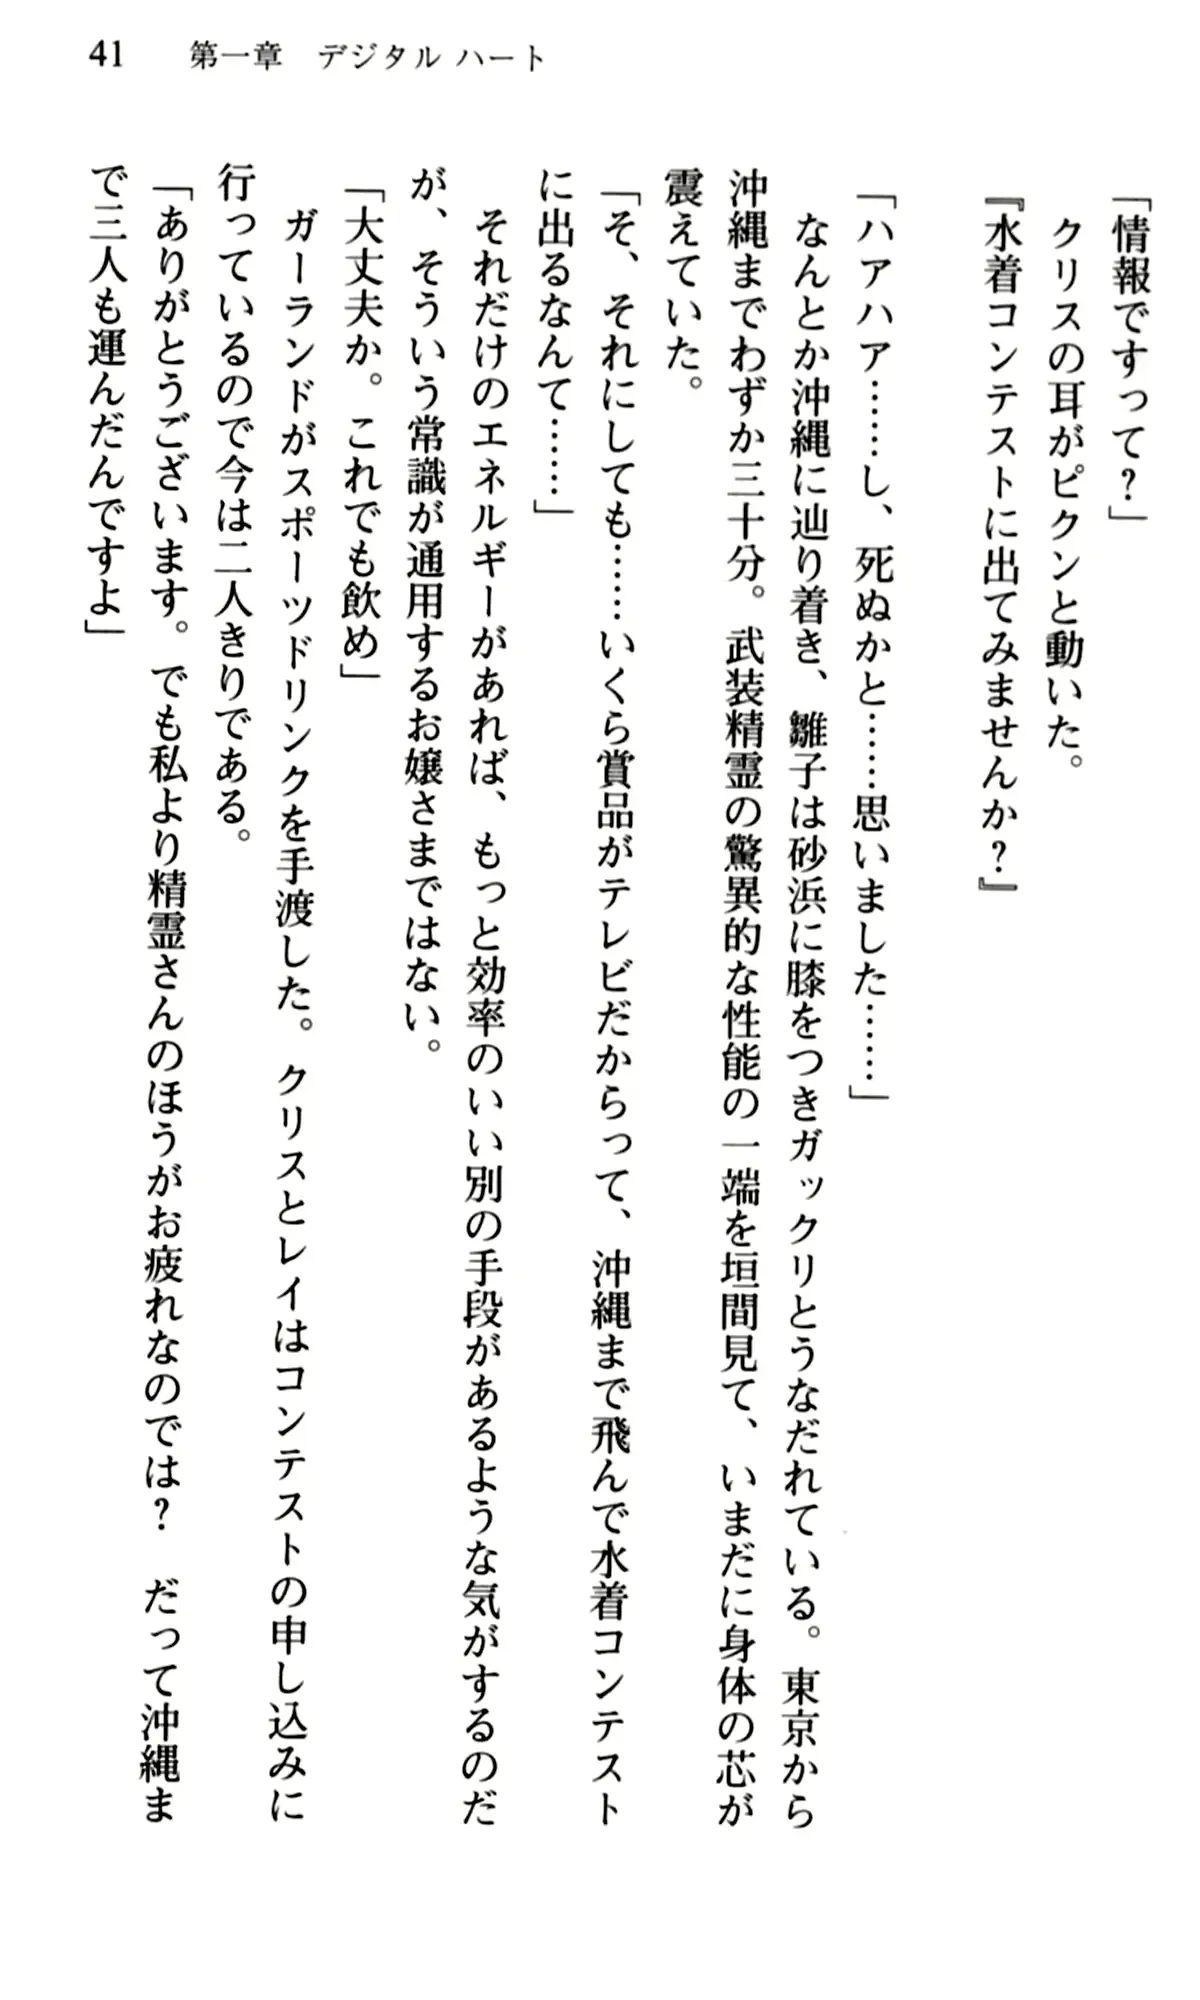 41　第一章　デジタル ハート
「情報ですって？」
　クリスの耳がピクンと動いた。
『水着コンテストに出てみませんか？』
「ハアハア……し、死ぬかと……思いました……」
　なんとか沖縄に辿り着き、雛子は砂浜に膝をつきガックリとうなだれている。東京から
沖縄までわずか三十分。武装精霊の驚異的な性能の一端を垣間見て、いまだに身体の芯が
震えていた。
「そ、それにしても……いくら賞品がテレビだからって、沖縄まで飛んで水着コンテスト
に出るなんて……」
　それだけのエネルギーがあれば、もっと効率のいい別の手段があるような気がするのだ
が、そういう常識が通用するお嬢さまではない。
「大丈夫か。これでも飲め」
　ガーランドがスポーツドリンクを手渡した。クリスとレイはコンテストの申し込みに
行っているので今は二人きりである。
「ありがとうございます。でも私より精霊さんのほうがお疲れなのでは？　だって沖縄ま
で三人も運んだんですよ」